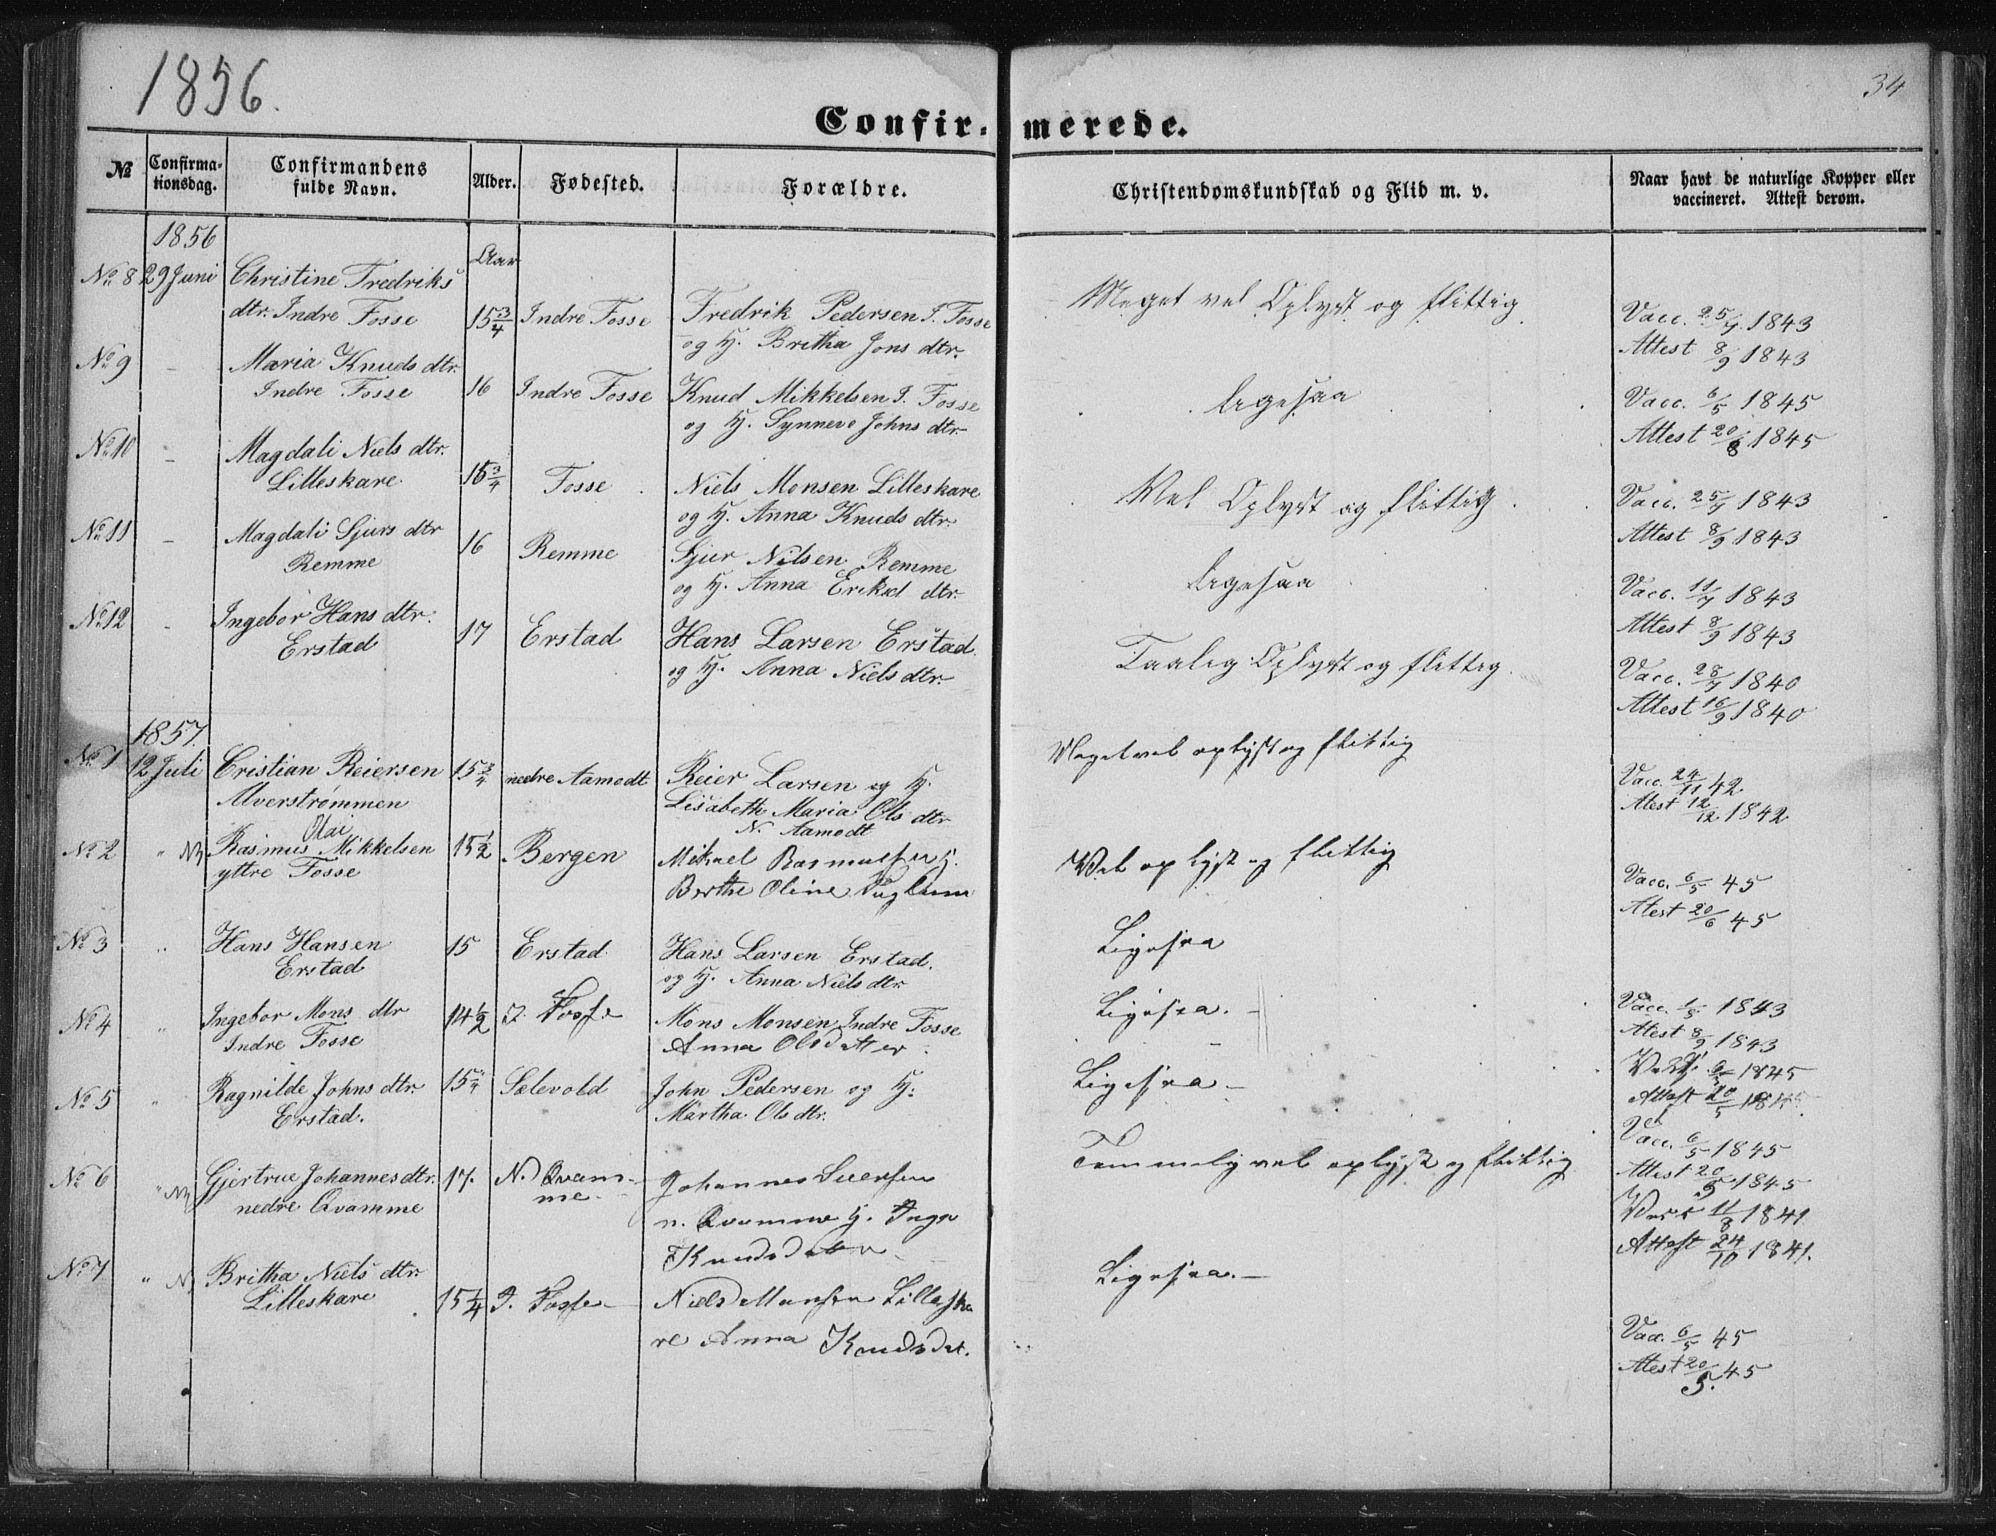 1856.
34
Confir- merede.
№ Confirma- tionsdag. Confirmandens fulde Navn. Alder. Fødested. Forældre. Christendomskundskab og Flid m. v. Naar havt de naturlige Kopper eller vaccineret. Attest derom.
1856
Aar
No 8 29 Juni Christine Fredriks
dtr. Indre Fosse 15 3/4 Indre Fosse Fredrik Pedersen I. Fosse Meget vel Oplyst og flittig Vacc. 25/7 1843
og H. Britha Jons dtr. Attest 8/9 1843
No 9 – Maria Knuds dtr.
Indre Fosse 16 Indre Fosse Knud Mikkelsen I. Fosse Ligesaa Vacc. 6/5 1845
og H. Synneve Johns dtr. Attest 20/6 1845
No 10 – Magdali Niels dtr.
Lilleskare 15 3/4 Fosse Niels Monsen Lilleskare Vel Oplyst og flittig Vacc. 25/7 1843
og H. Anna Knuds dtr. Attest 8/9 1843
No 11 – Magdali Sjurs dtr
Remme 16 Remme Sjur Nilsen Remme Ligesaa Vacc. 11/7 1843
og H. Anna Eriksd dtr. Attest 8/9 1843
No 12 – Ingebor Hans dtr.
Erstad 17 Erstad Hans Larsen Erstad Taalig Oplyst og flittig Vacc. 28/7 1840
og H. Anna Niels dtr. Attest 16/9 1840
1857.
No 1 12 Juli Cristian Reiersen 15 3/4 nedre Aamodt Reier Larsen og H. Meget vel oplyst og flittig Vacc. 24/11 42
Alverstrømmen Lisabeth Maria Ols dtr Atest 12/12 1842
N. Aamodt
Olai
No 2 " Rasmus Mikkelsen 15 1/2 Bergen Mikael Rasmussen H. Vel oplyst og flittig Vacc. 6/5 45
yttre Fosse Berthe Oline Atest 20/6 45
No 3 " Hans Hansen 15 Erstad Hans Larsen Erstad. Ligesaa
Erstad og H. Anna Niels dtr
No 4 " Ingebor Mons dtr 14 1/2 I. Fosse Mons Monsen Indre Fosse Ligesaa. – Vacc. 1843
Indre Fosse Anna Olsdatter Atest 8/9 1843
No 5 " Ragnilde Johns dtr. 15 Sælevold John Pedersen og H. Ligesaa – Vacc. 1845
Erstad. Martha Ols dtr. Attest 20/5 1845
Vacc. 6/5 1845
No 6 " Gjertrue Johannes dtr. 17. N. Qvam- Johannes Temmelig vel oplyst og flittig Attest 20/5 1845
nedre Qvamme me – n. Qvamme H. Inga Vacc 11/8 1841
Knudsdatter Attest 24/10 1841.
No 7 " Britha Niels dtr.
Lilleskare 15 1/4 I. Fosse – Niels Monsen Lilleska Ligesaa. –
re Anna Knudsdat. Vacc. 6/5 45
Atest 20/5. 45